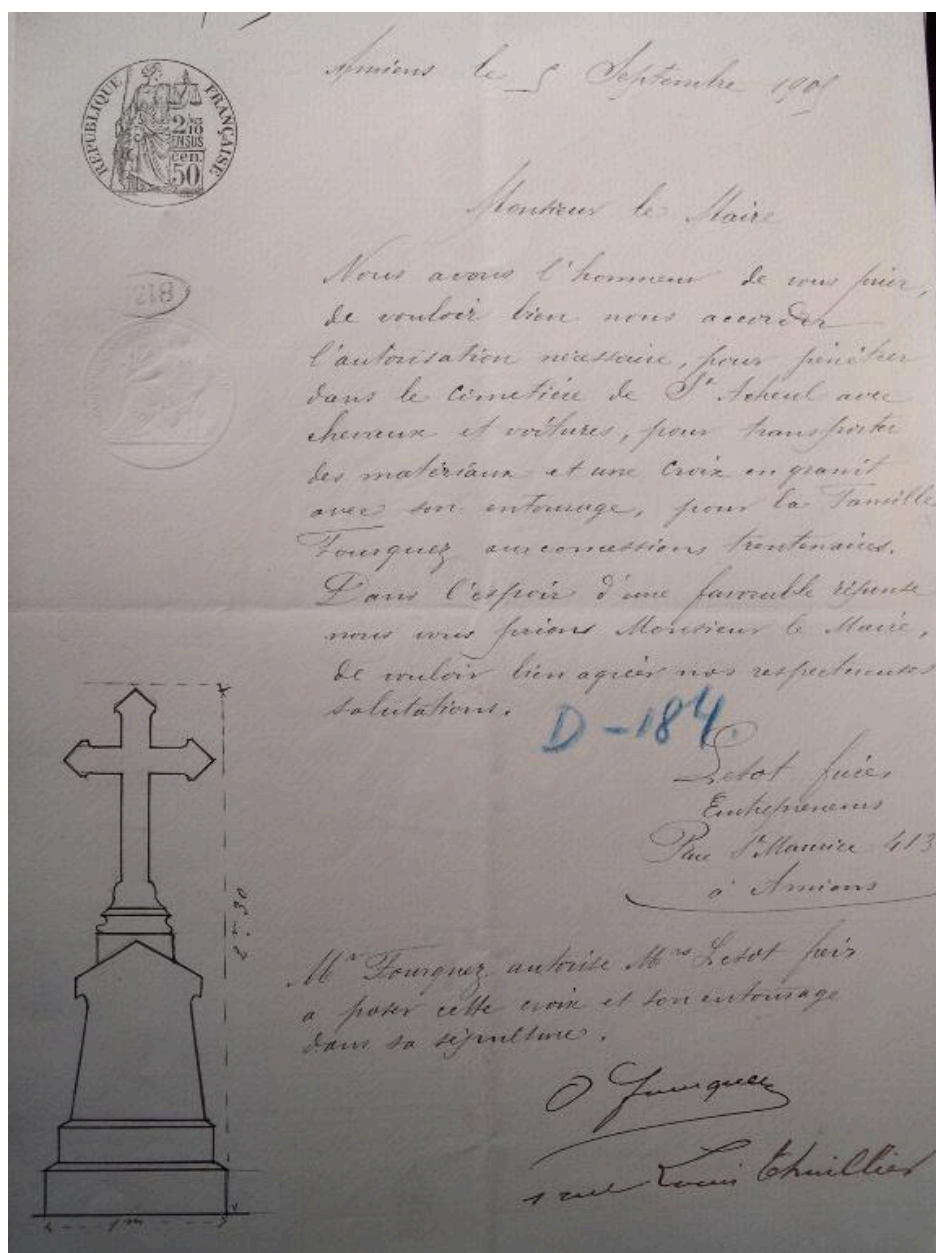 RÉPUBLIQUE FRANÇAISE
2/10
EN SUS
50
cen.
Amiens le 5 Septembre 190
Monsieur le Maire
Nous avons l'honneur de vous prier,
de vouloir bien nous accorder
l'autorisation nécessaire, pour pénétrer
dans le cimetière de St Acheul avec
chevaux et voitures, pour transporter
des matériaux et une croix en granit
avec son entourage, pour la Famille
Fourquez aux concessions trentenaires.
Dans l'espoir d'une favorable réponse
nous vous prions Monsieur le Maire,
de vouloir bien agréer nos respectueuses
salutations.
D-184
Letot
Entrepreneurs
Rue St Maurice 413
à Amiens
2m.30
Mr Fourquez autorise Mrs Letot
a poser cette croix et son entourage
dans sa sépulture.
O Fourquez
1 rue Louis Thuillier
1m